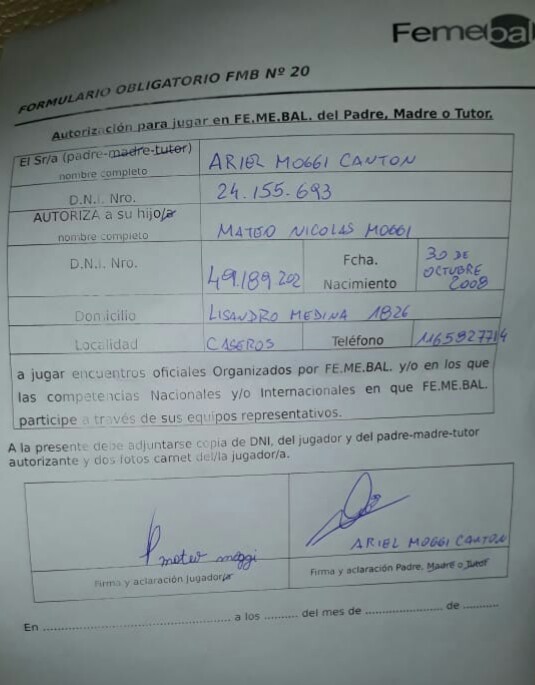 Femebal
FORMULARIO OBLIGATORIO FMB Nº 20
Autorización para jugar en FE.ME.BAL. del Padre, Madre o Tutor.
El Sr/a (padre-madre-tutor) ARIEL MOGGI CANTON
nombre completo
D.N.I. Nro. 24.155.693
AUTORIZA a su hijo/a MATEO NICOLAS MOGGI
nombre completo
D.N.I. Nro. 49.189.202 Fcha. Nacimiento 30 DE OCTUBRE 2008
Domicilio LISANDRO MEDINA 1826
Localidad CASEROS Teléfono 1165927714
a jugar encuentros oficiales Organizados por FE.ME.BAL. y/o en los que
las competencias Nacionales y/o Internacionales en que FE.ME.BAL.
participe a través de sus equipos representativos.
A la presente debe adjuntarse copia de DNI, del jugador y del padre-madre-tutor
autorizante y dos fotos carnet del/la jugador/a.
mateo moggi ARIEL MOGGI CANTON
Firma y aclaración Jugador/a Firma y aclaración Padre, Madre o Tutor
En .......................................................... a los .......... del mes de ....................... de ..........